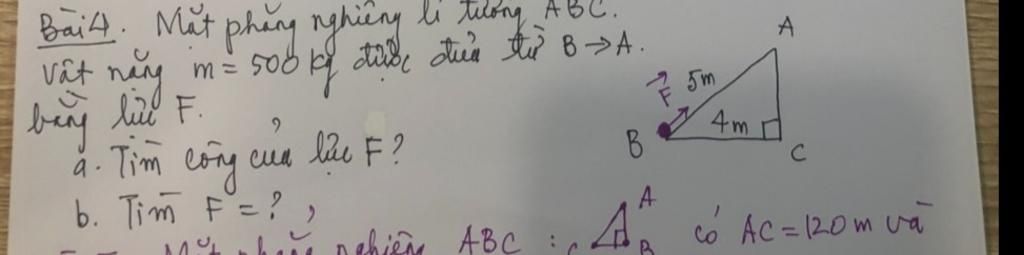 Bài 4. Mặt phẳng nghiêng lí tưởng ABC.
Vật nặng m = 500 kg được đưa từ B → A.
bằng lực F.
a. Tìm công của lực F?
b. Tìm F = ?
A
5m
F
4m
B
C
Mặt phẳng nghiêng ABC : có AC = 120 m và
A
C
B